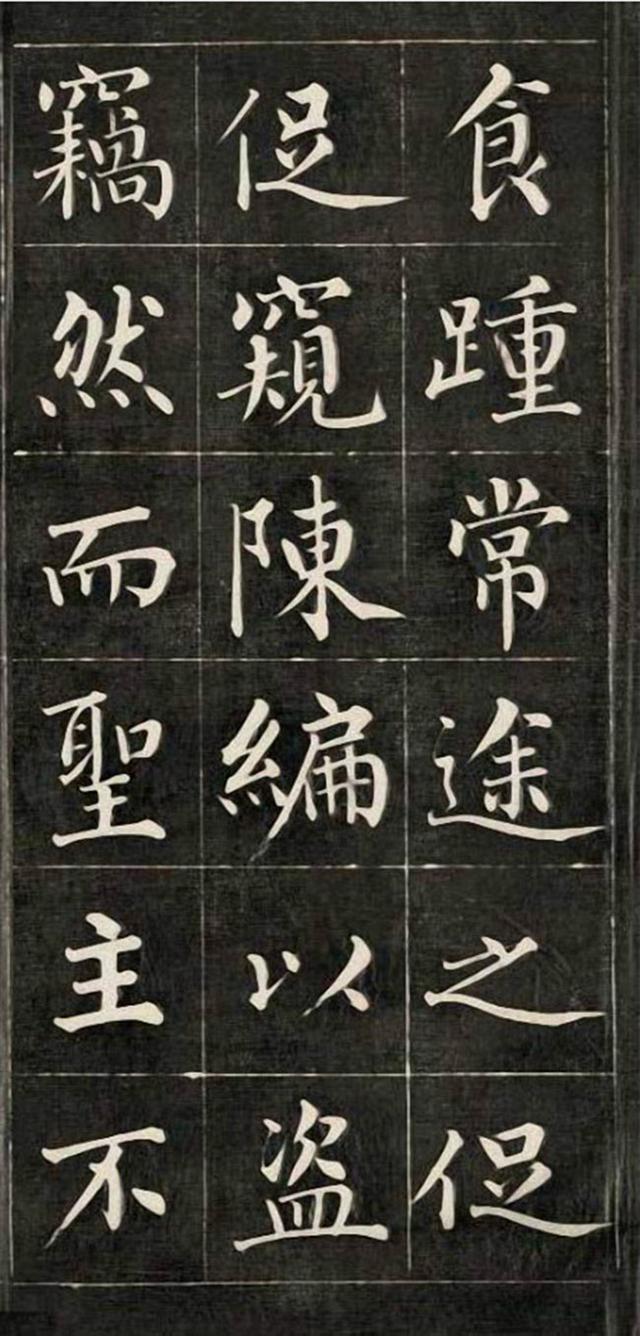 食踵常途之促
促窺陳編以盜
竊然而聖主不